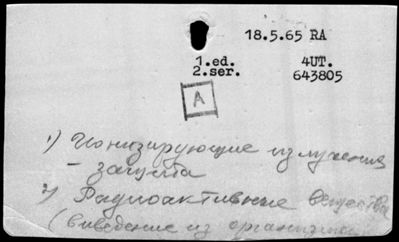 18.5.65 RA
1.ed. 4UT.
2.ser. 643805
A
1) Ионизирующие излучения
- защита
2) Радиоактивные вещества
(выведение из организма